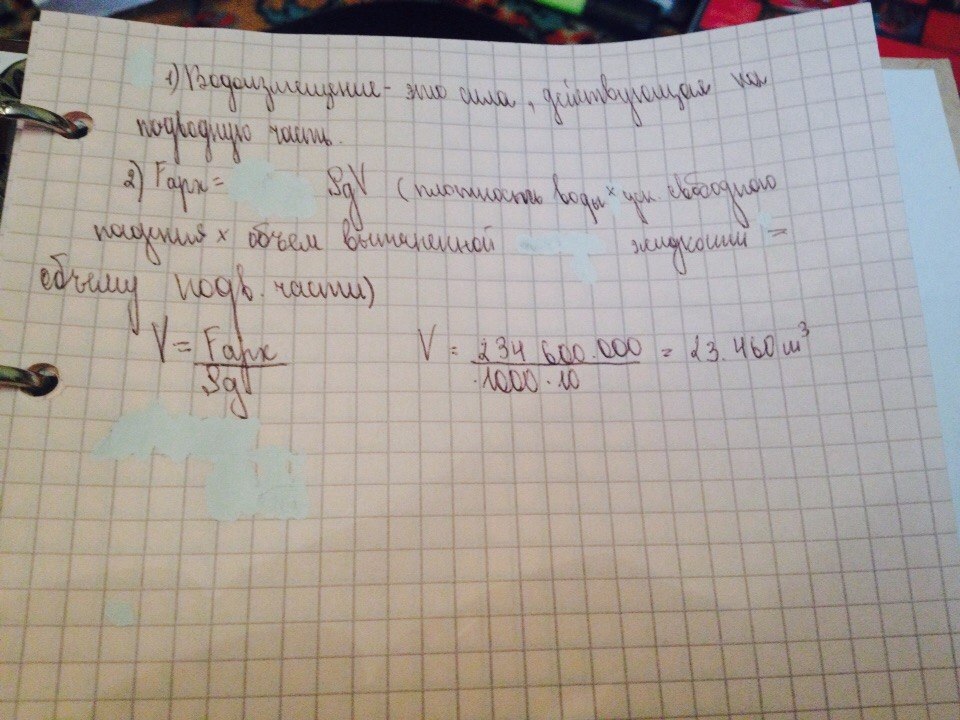 1) Водоизмещение - это сила, действующая на
подводную часть.
2) Fарх = SgV (плотность воды × уск. свободного
падения × объем вытесненной жидкости =
объему подв. части)
V = Fарх / Sg V = 234 600.000 / 1000 · 10 = 23.460 м³